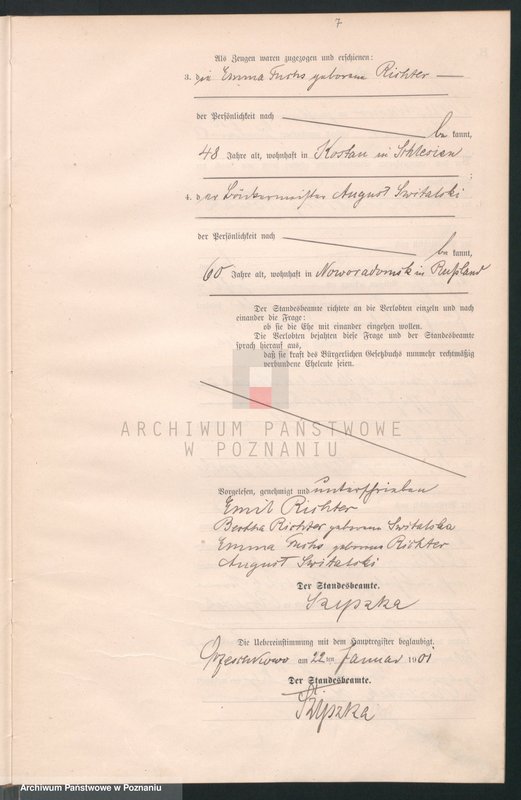 7
Als Zeugen waren zugezogen und erschienen:
3. die Emma Fuchs geborene Richter
der Persönlichkeit nach
be kannt,
48 Jahre alt, wohnhaft in Kostau in Schlesien
4. der Böttchermeister August Switalski
der Persönlichkeit nach
be kannt,
60 Jahre alt, wohnhaft in Noworadomsk in Rußland
Der Standesbeamte richtete an die Verlobten einzeln und nach
einander die Frage:
ob sie die Ehe mit einander eingehen wollen.
Die Verlobten bejahten diese Frage und der Standesbeamte
sprach hierauf aus,
daß sie kraft des Bürgerlichen Gesetzbuchs nunmehr rechtmäßig
verbundene Eheleute seien.
ARCHIWUM PAŃSTWOWE
W POZNANIU
Vorgelesen, genehmigt und unterschrieben
Emil Richter
Bertha Richter geborene Switalska
Emma Fuchs geborene Richter
August Switalski
Der Standesbeamte.
Szyszka
Die Uebereinstimmung mit dem Hauptregister beglaubigt.
am 22 ten Januar 1901
Der Standesbeamte.
Szyszka
Archiwum Państwowe w Poznaniu